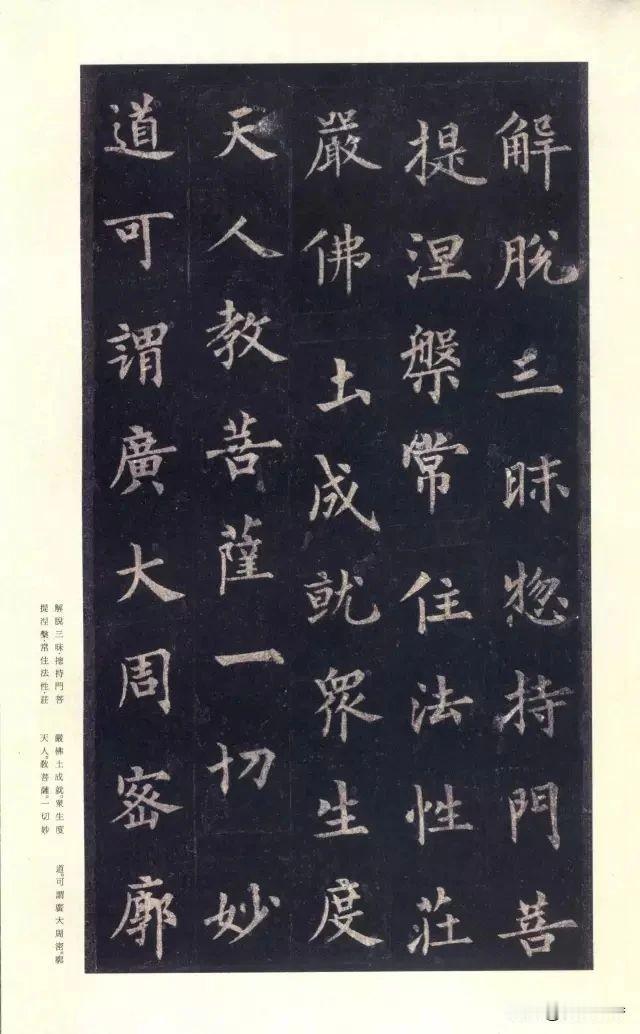 解脫三昧惣持門菩
提涅槃常住法性莊
嚴佛土成就衆生度
天人教菩薩一切妙
道可謂廣大周密廓
解脫三昧·揔持門菩
提涅槃·常住法性·莊
嚴佛土成就。衆生度
天人。教菩薩。一切妙
道。可謂廣大周密。廓